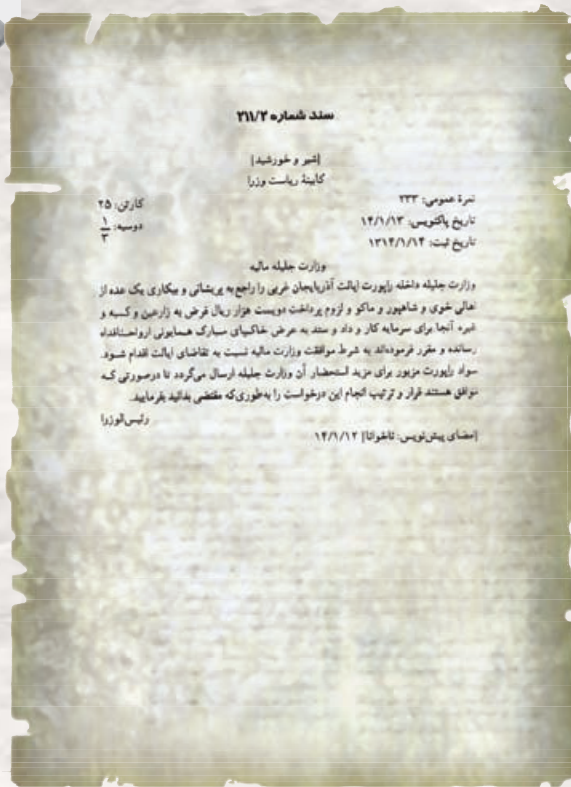 سند شماره ۲۱۱/۲
[شیر و خورشید]
کابینۀ ریاست وزرا
نمرۀ عمومی: ۲۳۳
کارتن: ۲۵
تاریخ پاکنویس: ۱۴/۱/۱۳
دوسیه: ۱/۳
تاریخ ثبت: ۱۳۱۴/۱/۱۴
وزارت جلیله مالیه
وزارت جلیله داخله راپورت ایالت آذربایجان غربی را راجع به پریشانی و بیکاری یک عده از
اهالی خوی و شاهپور و ماکو و لزوم پرداخت دویست هزار ریال قرض به زارعین و کسبه و
غیره آنجا برای سرمایه کار و داد و ستد به عرض خاکپای مبارک همایونی ارواحنافداه
رسانده و مقرر فرموده‌اند به شرط موافقت وزارت مالیه نسبت به تقاضای ایالت اقدام شود.
سواد راپورت مزبور برای مزید استحضار آن وزارت جلیله ارسال می‌گردد تا درصورتی که
موافق هستند قرار و ترتیب انجام این درخواست را به‌طوری‌که مقتضی بدانید بفرمایید.
رئیس‌الوزرا
[امضای پیش‌نویس: ناخوانا] ۱۴/۱/۱۲